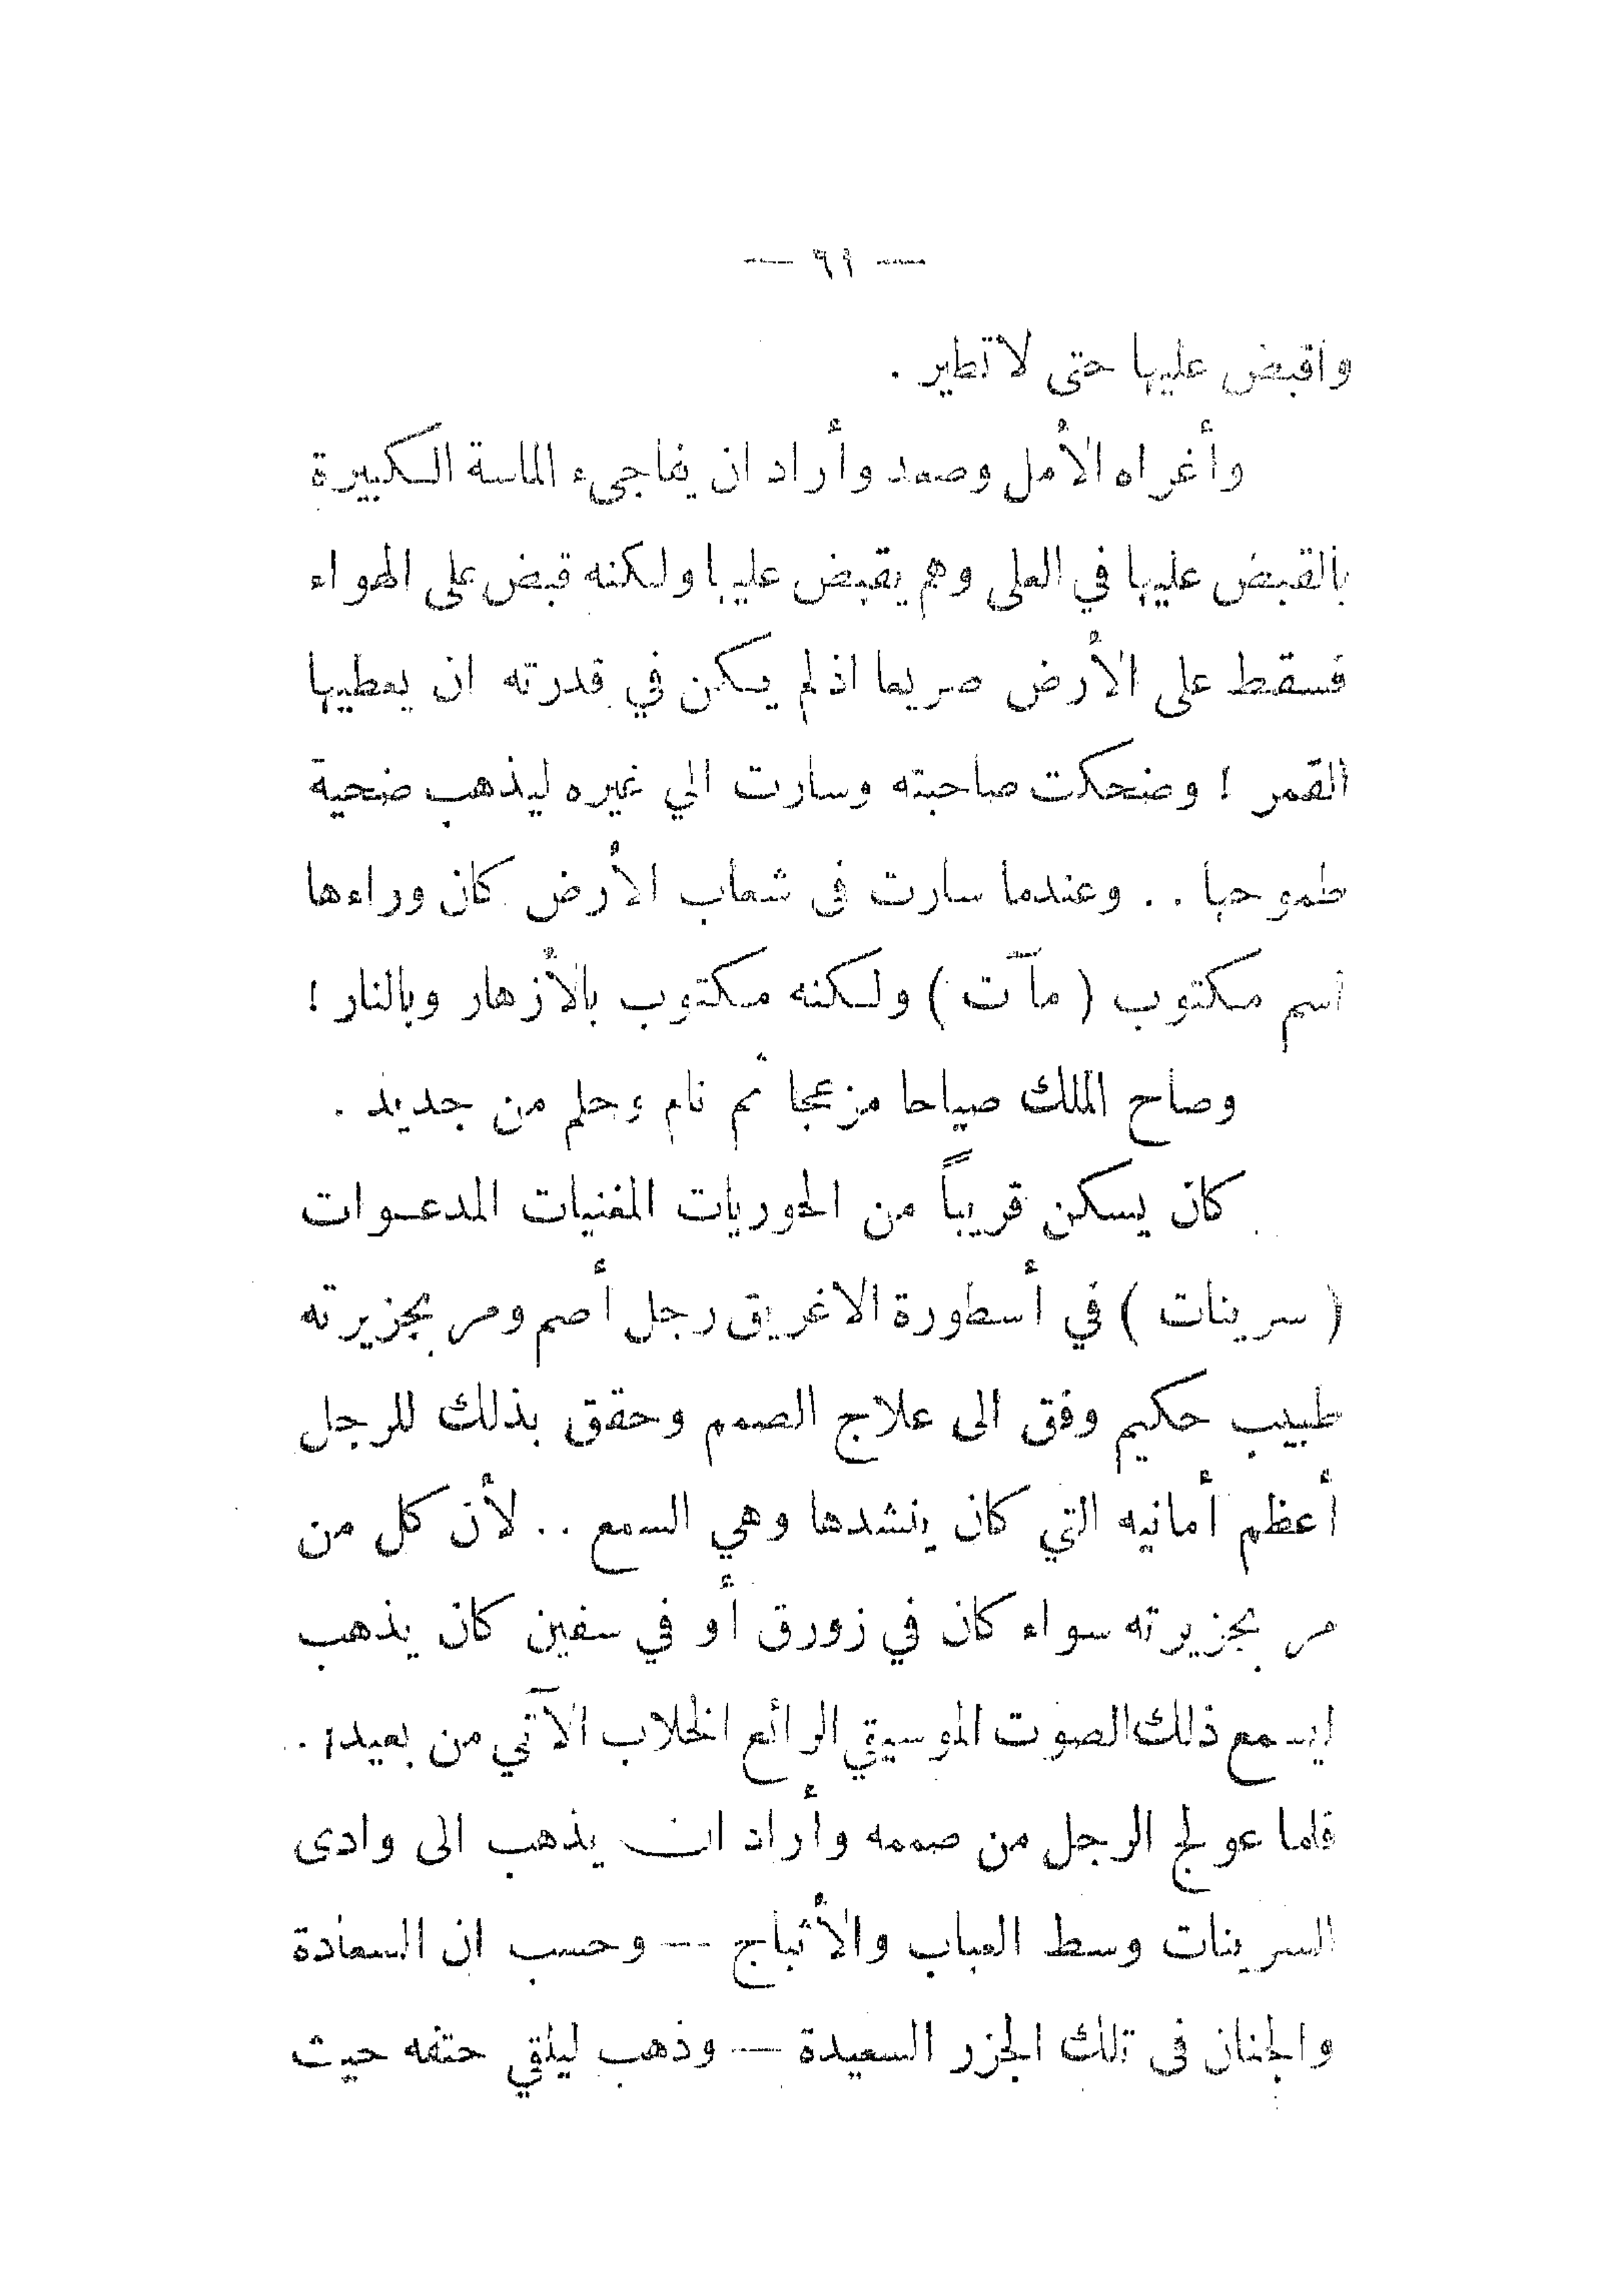 — ٩١ —
واقبض عليها حتى لا تطير .
وأغراه الأمل وصعد وأراد ان يفاجىء الماسة الكبيرة
بالقبض عليها في العلى وهم يقبض عليها ولكنه قبض على الهواء
فسقط على الأرض صريعا اذ لم يكن في قدرته ان يعطيها
القمر ! وضحكت صاحبته وسارت الي غيره ليذهب ضحية
طموحها . . وعندما سارت فى شعاب الأرض كان وراءها
اسم مكتوب ( مآت ) ولكنه مكتوب بالأزهار وبالنار !
وصاح الملك صياحا مزعجا ثم نام وحلم من جديد .
كان يسكن قريباً من الحوريات المغنيات المدعوات
( سرينات ) في أسطورة الاغريق رجل أصم ومر بجزيرته
طبيب حكيم وفق الى علاج الصمم وحقق بذلك للرجل
أعظم أمانيه التي كان ينشدها وهي السمع . . لأن كل من
مر بجزيرته سواء كان في زورق أو في سفين كان يذهب
ليسمع ذلك الصوت الموسيقي الرائع الخلاب الآتي من بعيد ! .
فلما عولج الرجل من صممه وأراد ان يذهب الى وادى
السرينات وسط العباب والأثباج — وحسب ان السعادة
والجنان فى تلك الجزر السعيدة — وذهب ليلقي حتفه حيث